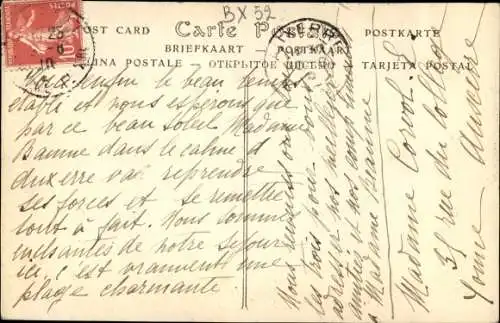 BX 52
POST CARD Carte Postale POSTKARTE
BRIEFKAART — POSTKAART
POSTALE — ОТКРЫТОЕ ПИСЬМО — TARJETA POSTAL
10
Enfin le beau temps
établi et nous espérons que
par ce beau soleil Madame
Baume dans le calme d
Auxerre va reprendre
ses forces et se remettre
tout à fait. Nous sommes
enchantés de notre séjour
ici, c'est vraiment une
plage charmante.
Nous
les trois pour
adresser nos meilleures
amitiés et nos compliments
à Madame Beaume
Madame Corvol
35 rue du Collège
Auxerre
Yonne